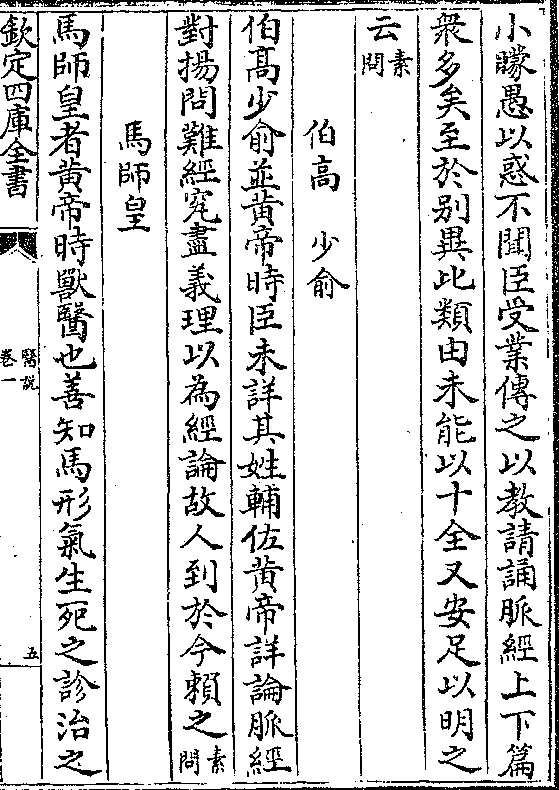 小矇愚以惑不聞臣受業傳之以教請誦脈經上下篇
衆多矣至於别異比類由未能以十全又安足以明之
云素問
伯高　少俞
伯髙少俞並黄帝時臣未詳其姓輔佐黄帝詳論脈經
對揚問難經究盡義理以為經論故人到於今賴之素問
馬師皇
馬師皇者黄帝時獸醫也善知馬形氣生死之診治之
欽定四庫全書
醫説
卷一
五